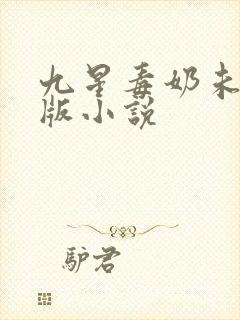 九星毒奶未
版小說
驴君